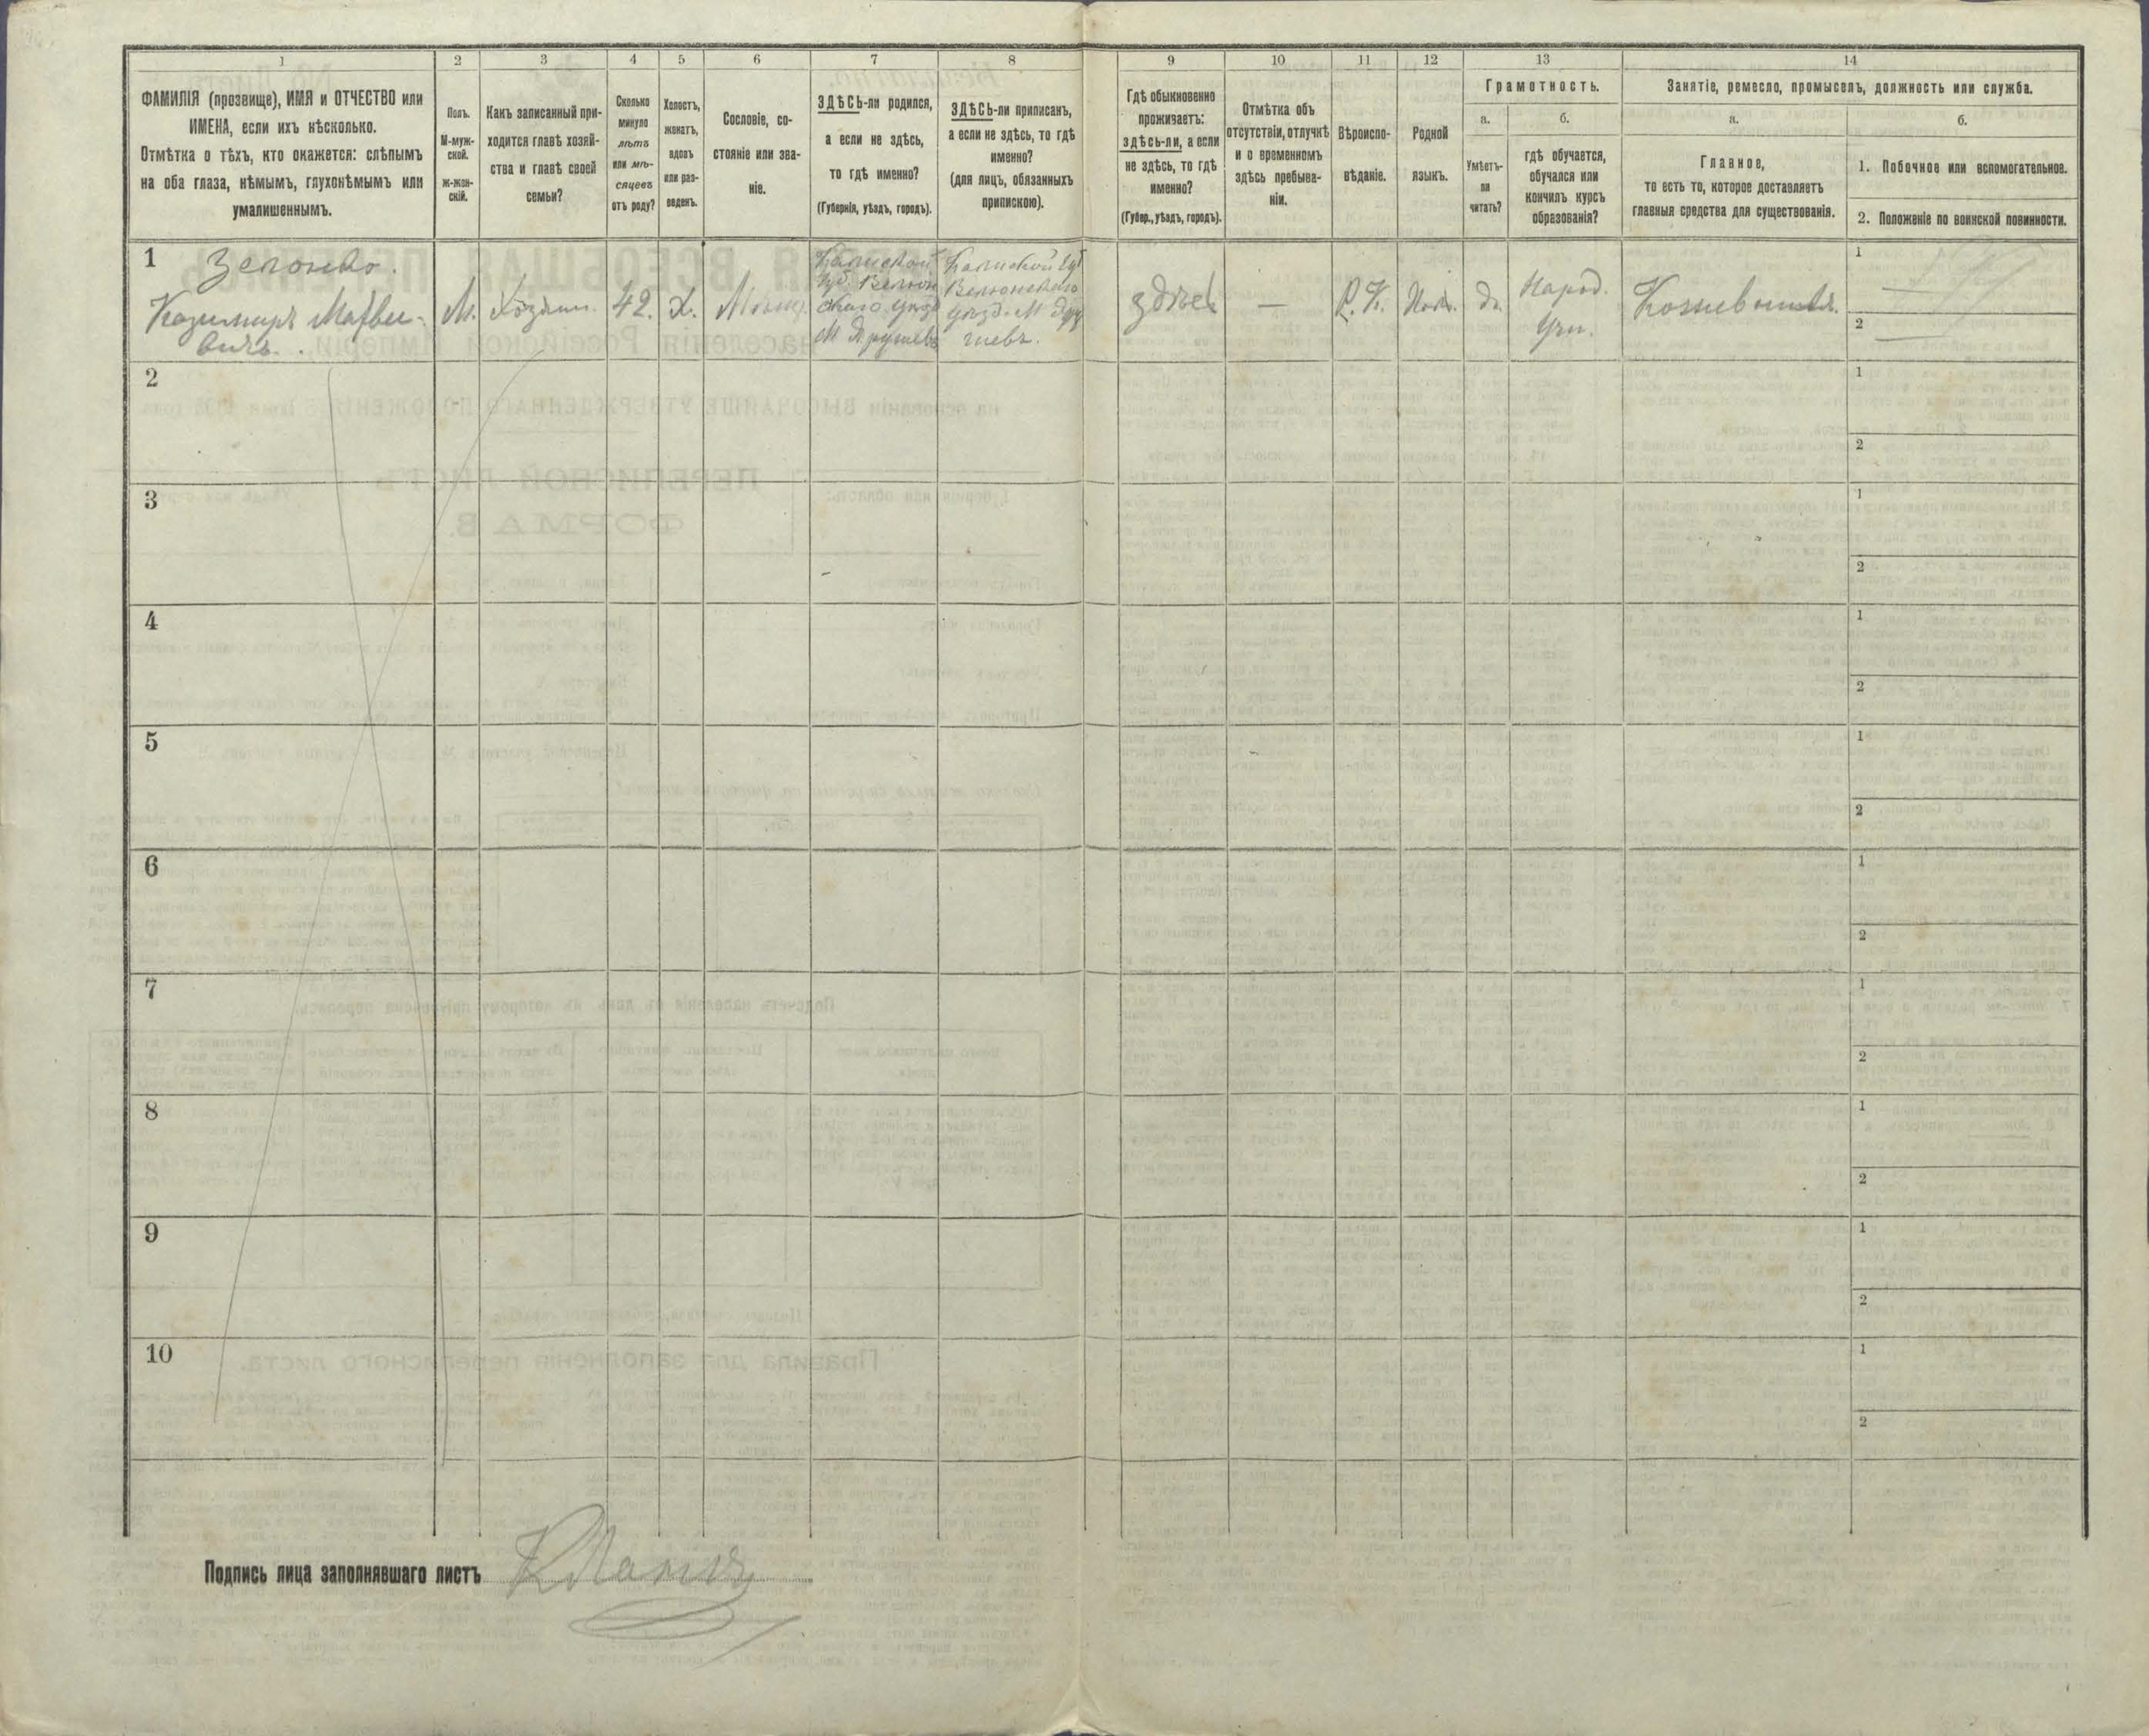 1 2 3 4 5 6 7 8 9 10 11 12 13 14
ФАМИЛІЯ (прозвище), ИМЯ и ОТЧЕСТВО или
ИМЕНА, если ихъ нѣсколько.
Отмѣтка о тѣхъ, кто окажется: слѣпымъ
на оба глаза, нѣмымъ, глухонѣмымъ или
умалишеннымъ.
Полъ.
М-муж-
ской.
ж-жен-
скій.
Какъ записанный при-
ходится главѣ хозяй-
ства и главѣ своей
семьи?
Сколько
минуло
лѣтъ
или мѣ-
сяцевъ
отъ роду?
Холостъ,
женатъ,
вдовъ
или раз-
веденъ.
Сословіе, со-
стояніе или зва-
ніе.
ЗДѢСЬ-ли родился,
а если не здѣсь,
то гдѣ именно?
(Губернія, уѣздъ, городъ).
ЗДѢСЬ-ли приписанъ,
а если не здѣсь, то гдѣ
именно?
(для лицъ, обязанныхъ
припискою).
Гдѣ обыкновенно
проживаетъ:
здѣсь-ли, а если
не здѣсь, то гдѣ
именно?
(Губер., уѣздъ, городъ).
Отмѣтка объ
отсутствіи, отлучкѣ
и о временномъ
здѣсь пребыва-
ніи.
Вѣроиспо-
вѣданіе.
Родной
языкъ.
Грамотность.
а.
Умѣетъ-
ли
читать?
б.
гдѣ обучается,
обучался или
кончилъ курсъ
образованія?
Занятіе, ремесло, промыселъ, должность или служба.
а.
Главное,
то есть то, которое доставляетъ
главныя средства для существованія.
б.
1. Побочное или вспомогательное.
2. Положеніе по воинской повинности.
1
Казимиръ Матвѣе-
вичъ.
М.
Хозяин.
42.
Х.
Калиской
губ. Велюн
скаго уѣзд
Калиской губ
Велюнскаго
уѣзд.
здѣсь
—
Р. К.
Пол.
да
Народ.
Уч.
1
2
2
1
2
3
1
2
4
1
2
5
1
2
6
1
2
7
1
2
8
1
2
9
1
2
10
1
2
Подпись лица заполнявшаго листъ